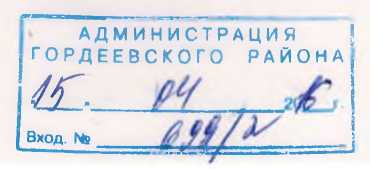 АДМИНИСТРАЦИЯ
ГОРДЕЕВСКОГО РАЙОНА
15. 04 2016 г.
Вход. № 699/2